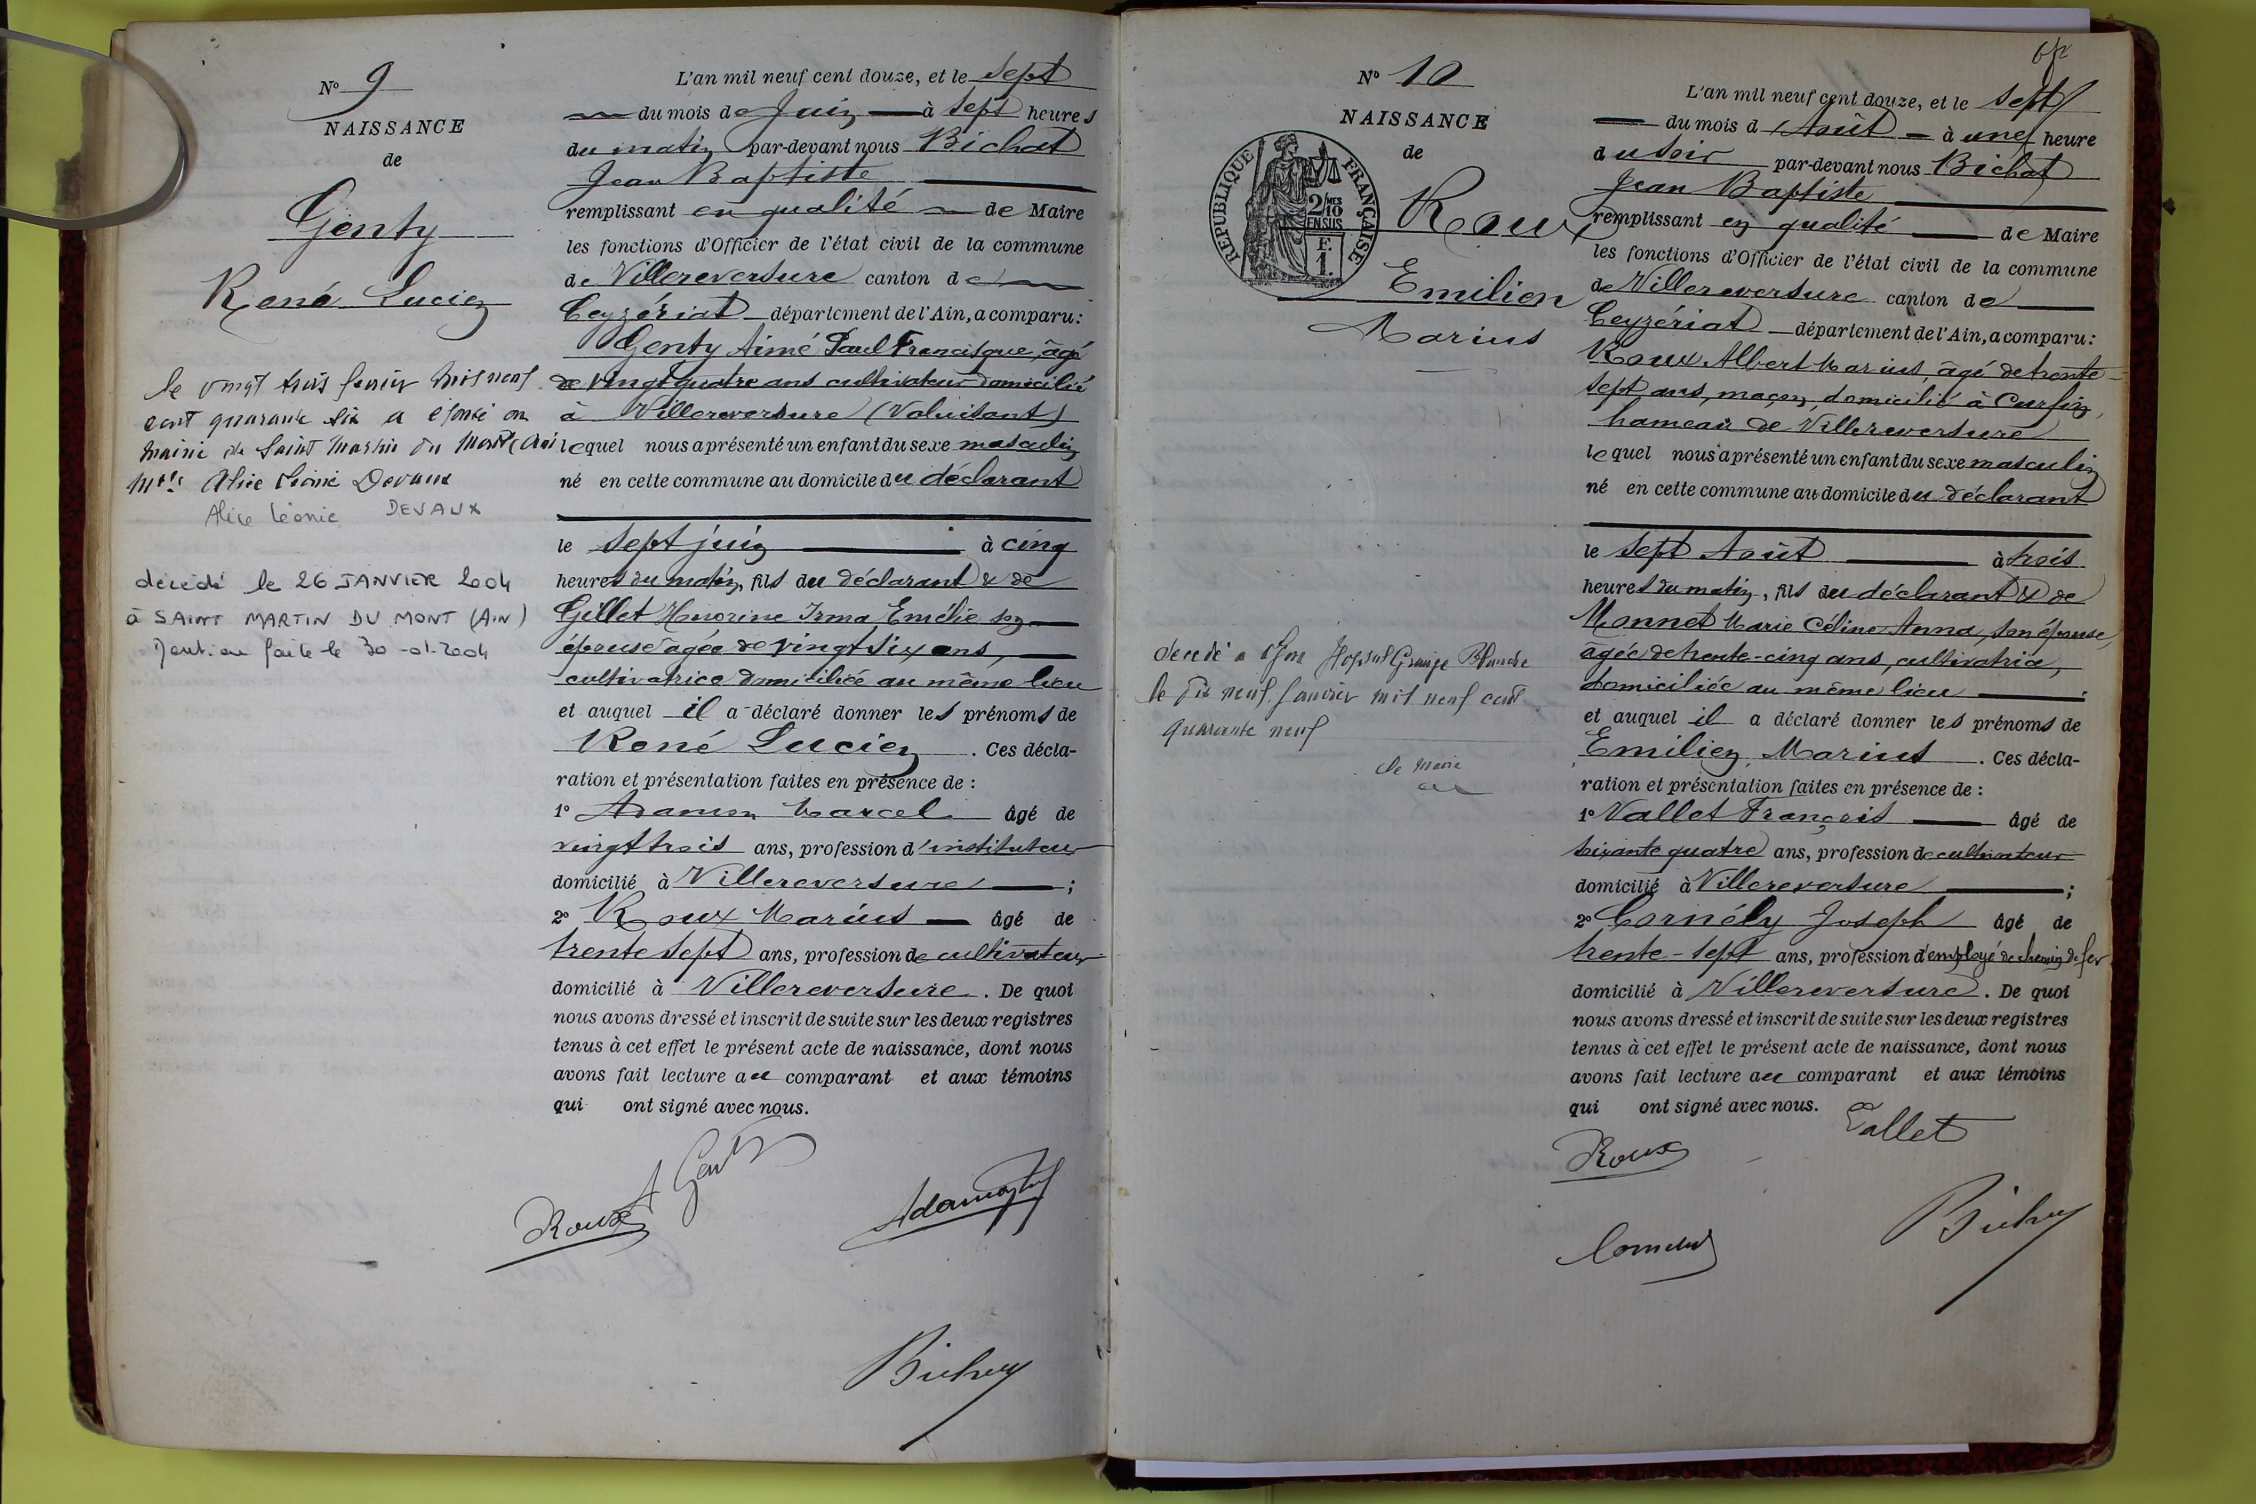 N° 9
NAISSANCE
de
Genty
René Lucien
le vingt trois janvier mil neuf
cent quarante six a épousé en
mairie de Saint Martin du Mont (Ain)
Mlle Alice Léonie Devaux
Alice Léonie DEVAUX
décédé le 26 JANVIER 2004
à SAINT MARTIN DU MONT (AIN)
Mention faite le 30-01-2004
L'an mil neuf cent douze, et le sept
du mois de Juin à sept heures
du matin par-devant nous Bichat
Jean Baptiste
remplissant en qualité de Maire
les fonctions d'Officier de l'état civil de la commune
de Villereversure canton de
Ceyzériat département de l'Ain, a comparu:
Genty Aimé Paul Francisque, âgé
de vingt quatre ans cultivateur domicilié
à Villereversure (Noblens)
lequel nous a présenté un enfant du sexe masculin
né en cette commune au domicile du déclarant
le sept juin à cinq
heures du matin, fils du déclarant & de
Gillet Honorine Irma Emélie son
épouse âgée de vingt six ans,
cultivatrice domiciliée au même lieu
et auquel il a déclaré donner les prénoms de
René Lucien. Ces décla-
ration et présentation faites en présence de :
1° Adamon Marcel âgé de
vingt trois ans, profession d'instituteur
domicilié à Villereversure ;
2° Roux Marius âgé de
trente sept ans, profession de cultivateur
domicilié à Villereversure. De quoi
nous avons dressé et inscrit de suite sur les deux registres
tenus à cet effet le présent acte de naissance, dont nous
avons fait lecture au comparant et aux témoins
qui ont signé avec nous.
A Genty
Roux
Bichat
6
N° 10
NAISSANCE
de
RÉPUBLIQUE FRANÇAISE
2/10 MES
EN SUS
F.
1.
Roux
Emilien
Marius
décédé à Lyon Hopital Grange Blanche
le dix neuf janvier mil neuf cent
quarante neuf
Le Maire
L'an mil neuf cent douze, et le sept
du mois d'Août à une heure
du soir par-devant nous Bichat
Jean Baptiste
remplissant en qualité de Maire
les fonctions d'Officier de l'état civil de la commune
de Villereversure canton de
Ceyzériat département de l'Ain, a comparu:
Roux Albert Marius, âgé de trente-
sept ans, maçon, domicilié à Curfin,
hameau de Villereversure
lequel nous a présenté un enfant du sexe masculin
né en cette commune au domicile du déclarant
le sept Août à trois
heures du matin, fils du déclarant & de
Monnet Marie Céline Anna, son épouse,
âgée de trente-cinq ans, cultivatrice,
domiciliée au même lieu ;
et auquel il a déclaré donner les prénoms de
Emilien, Marius. Ces décla-
ration et présentation faites en présence de :
1° Vallet François âgé de
soixante quatre ans, profession de cultivateur
domicilié à Villereversure ;
2° Cornély Joseph âgé de
trente-sept ans, profession d'employé de chemin de fer
domicilié à Villereversure. De quoi
nous avons dressé et inscrit de suite sur les deux registres
tenus à cet effet le présent acte de naissance, dont nous
avons fait lecture au comparant et aux témoins
qui ont signé avec nous.
Vallet
Roux
Bichat
Cornély